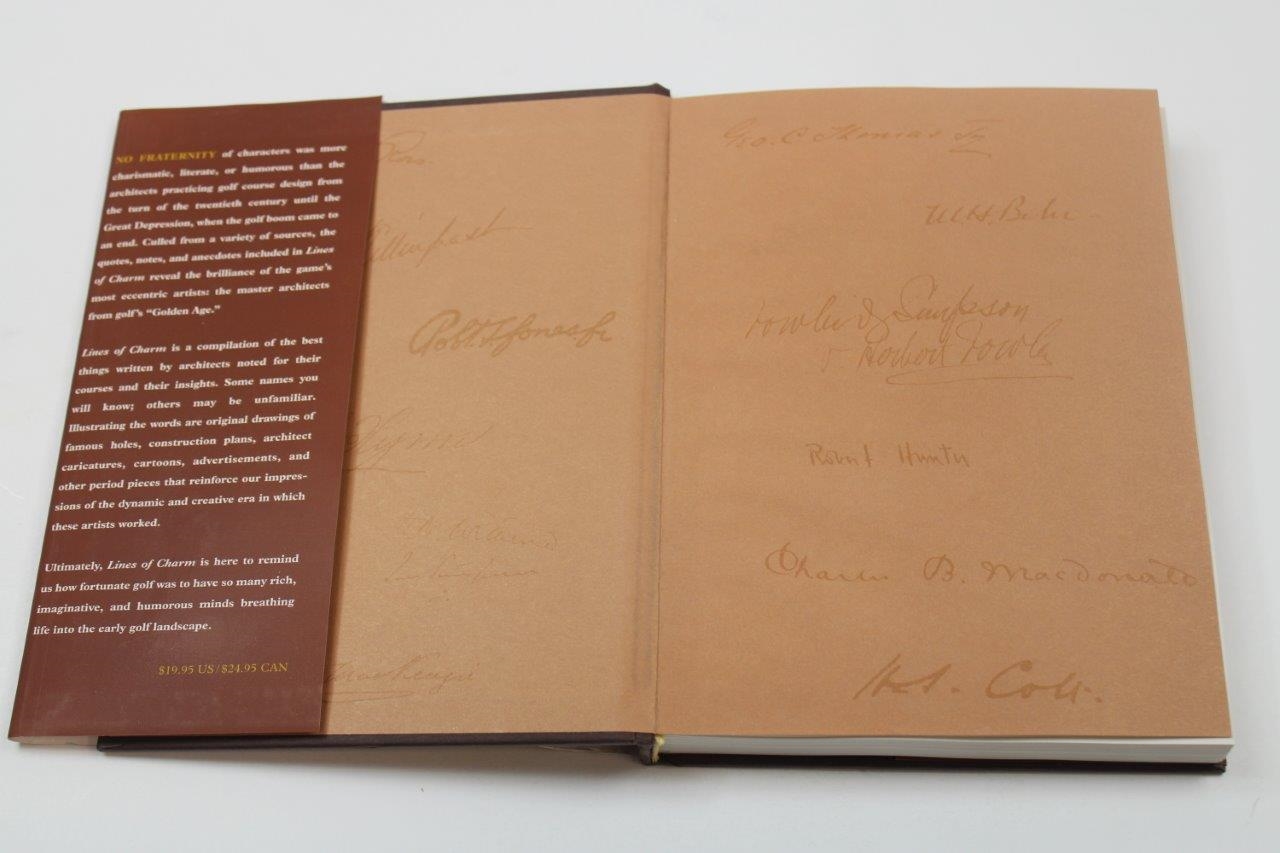 NO FRATERNITY of characters was more
charismatic, literate, or humorous than the
architects practicing golf course design from
the turn of the twentieth century until the
Great Depression, when the golf boom came to
an end. Culled from a variety of sources, the
quotes, notes, and anecdotes included in Lines
of Charm reveal the brilliance of the game's
most eccentric artists: the master architects
from golf's "Golden Age."
Lines of Charm is a compilation of the best
things written by architects noted for their
courses and their insights. Some names you
will know; others may be unfamiliar.
Illustrating the words are original drawings of
famous holes, construction plans, architect
caricatures, cartoons, advertisements, and
other period pieces that reinforce our impres-
sions of the dynamic and creative era in which
these artists worked.
Ultimately, Lines of Charm is here to remind
us how fortunate golf was to have so many rich,
imaginative, and humorous minds breathing
life into the early golf landscape.
$19.95 US/$24.95 CAN
Ross.
Tillinghast
Robt T Jones Jr
MacKenzie
Geo. C Thomas Jr
Fowler & Simpson
Robert Hunter
Charles B. MacDonald
H.S. Colt.